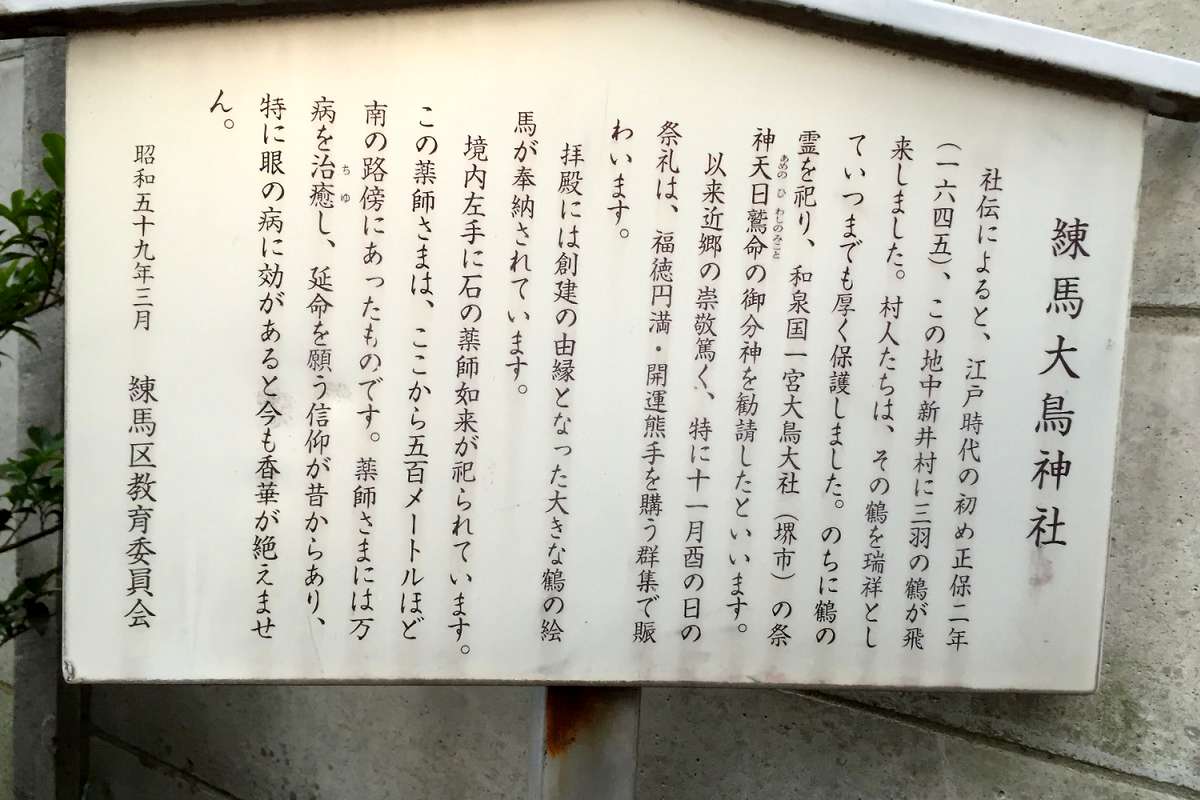 練馬大鳥神社
社伝によると、江戸時代の初め正保二年
(一六四五)、この地中新井村に三羽の鶴が飛
来しました。村人たちは、その鶴を瑞祥とし
ていつまでも厚く保護しました。のちに鶴の
霊を祀り、和泉国一宮大鳥大社(堺市)の祭
神天日鷲命の御分神を勧請したといいます。
あめの ひ わしのみこと
以来近郷の崇敬篤く、特に十一月酉の日の
祭礼は、福徳円満・開運熊手を購う群集で賑
わいます。
拝殿には創建の由縁となった大きな鶴の絵
馬が奉納されています。
境内左手に石の薬師如来が祀られています。
この薬師さまは、ここから五百メートルほど
南の路傍にあったものです。薬師さまには万
病を治癒し、延命を願う信仰が昔からあり、
ちゆ
特に眼の病に効があると今も香華が絶えませ
ん。
昭和五十九年三月 練馬区教育委員会